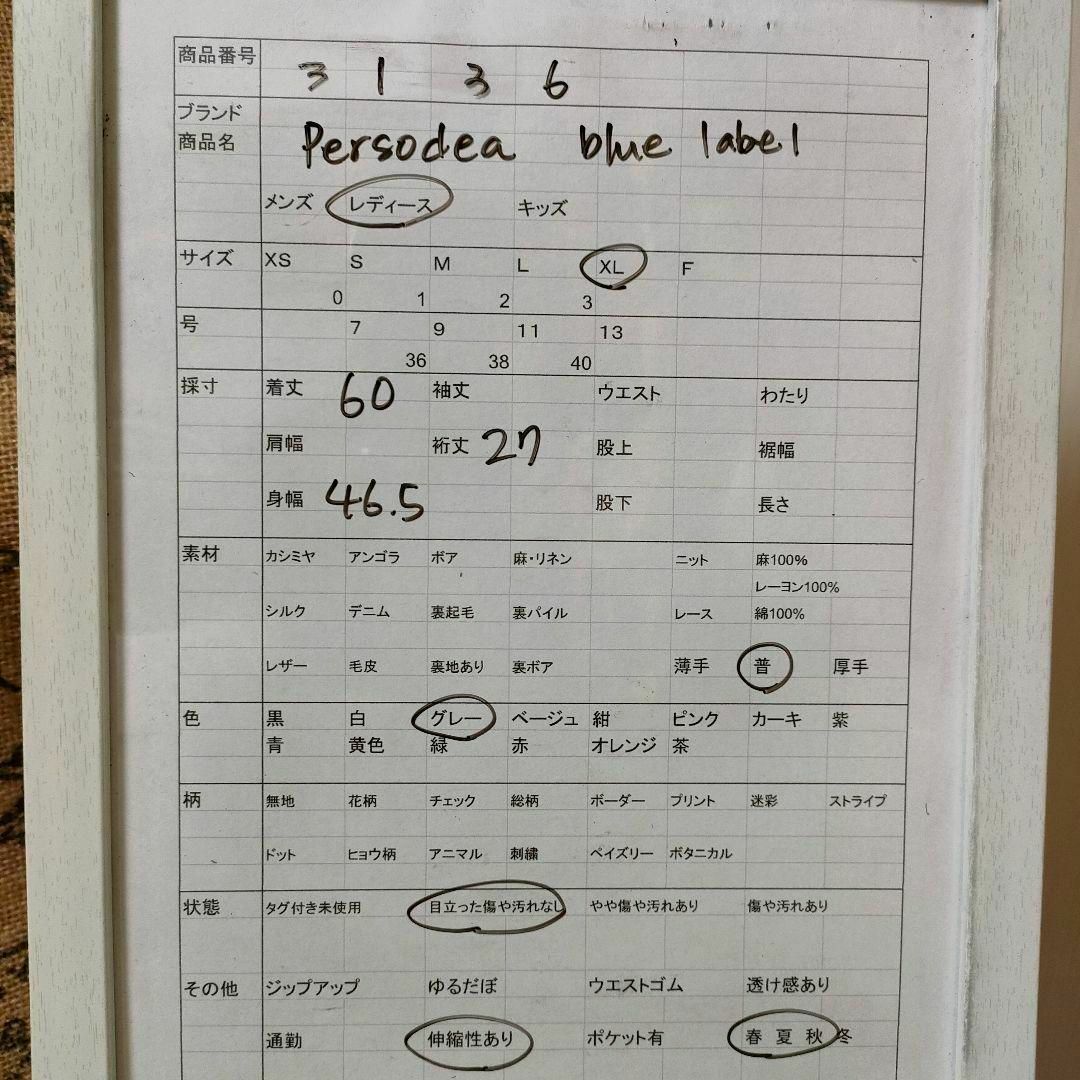 商品番号 3 1 3 6
ブランド
商品名 Persodea blue label
メンズ レディース キッズ
サイズ XS S M L XL F
0 1 2 3
号 7 9 11 13
36 38 40
採寸 着丈 60 袖丈 ウエスト わたり
肩幅 裄丈 27 股上 裾幅
身幅 46.5 股下 長さ
素材 カシミヤ アンゴラ ボア 麻・リネン ニット 麻100%
レーヨン100%
シルク デニム 裏起毛 裏パイル レース 綿100%
レザー 毛皮 裏地あり 裏ボア 薄手 普 厚手
色 黒 白 グレー ベージュ 紺 ピンク カーキ 紫
青 黄色 緑 赤 オレンジ 茶
柄 無地 花柄 チェック 総柄 ボーダー プリント 迷彩 ストライプ
ドット ヒョウ柄 アニマル 刺繍 ペイズリー ボタニカル
状態 タグ付き未使用 目立った傷や汚れなし やや傷や汚れあり 傷や汚れあり
その他 ジップアップ ゆるだぼ ウエストゴム 透け感あり
通勤 伸縮性あり ポケット有 春 夏 秋 冬